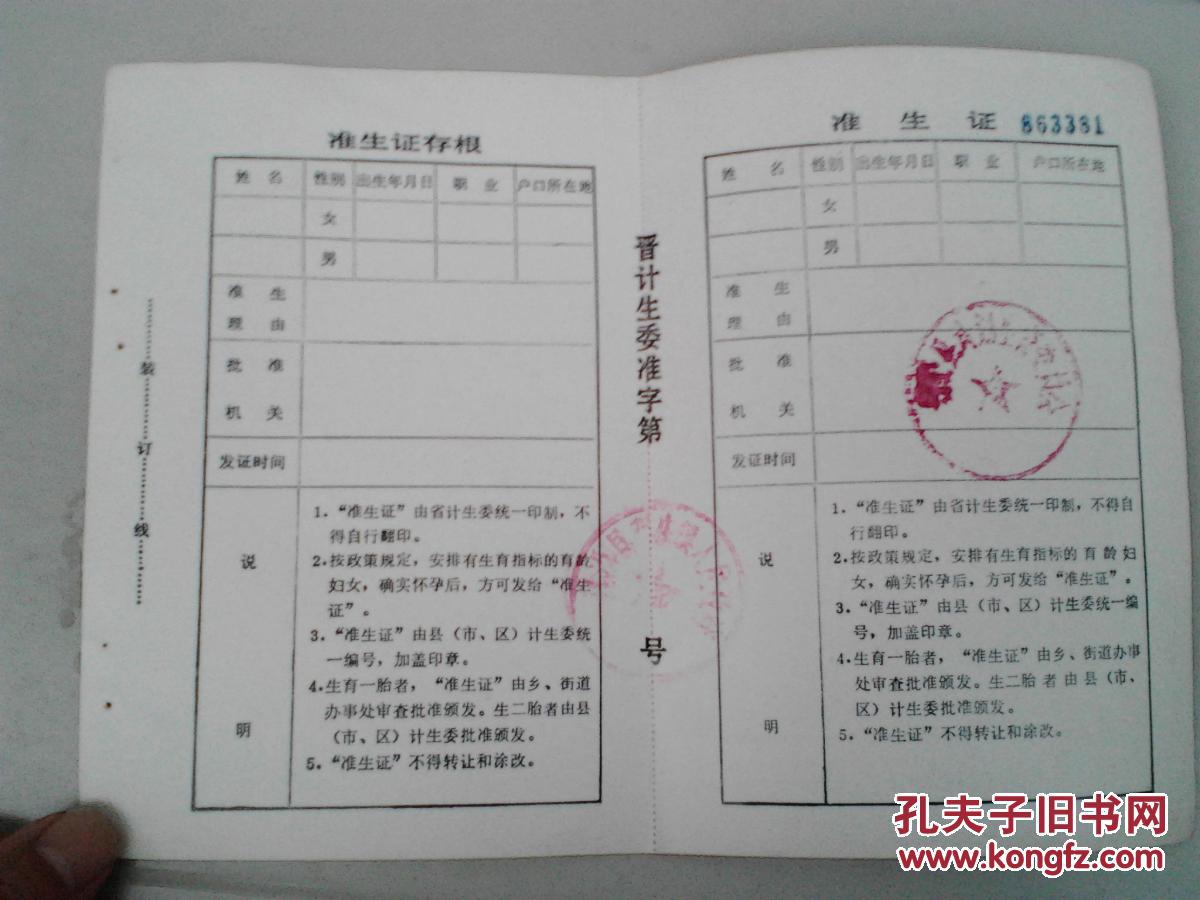 准生证存根
姓 名 性别 出生年月日 职 业 户口所在地
女
男
准 生
理 由
批 准
机 关
发证时间
说
明
1．“准生证”由省计生委统一印制，不
得自行翻印。
2．按政策规定，安排有生育指标的育龄
妇女，确实怀孕后，方可发给“准生
证”。
3．“准生证”由县（市、区）计生委统
一编号，加盖印章。
4．生育一胎者，“准生证”由乡、街道
办事处审查批准颁发。生二胎者由县
（市、区）计生委批准颁发。
5．“准生证”不得转让和涂改。
装
订
线
晋计生委准字第
号
准 生 证 863381
姓 名 性别 出生年月日 职 业 户口所在地
女
男
准 生
理 由
批 准
机 关
发证时间
说
明
1．“准生证”由省计生委统一印制，不得自
行翻印。
2．按政策规定，安排有生育指标的育龄妇
女，确实怀孕后，方可发给“准生证”。
3．“准生证”由县（市、区）计生委统一编
号，加盖印章。
4．生育一胎者，“准生证”由乡、街道办事
处审查批准颁发。生二胎者由县（市、
区）计生委批准颁发。
5．“准生证”不得转让和涂改。
孔夫子旧书网
www.kongfz.com